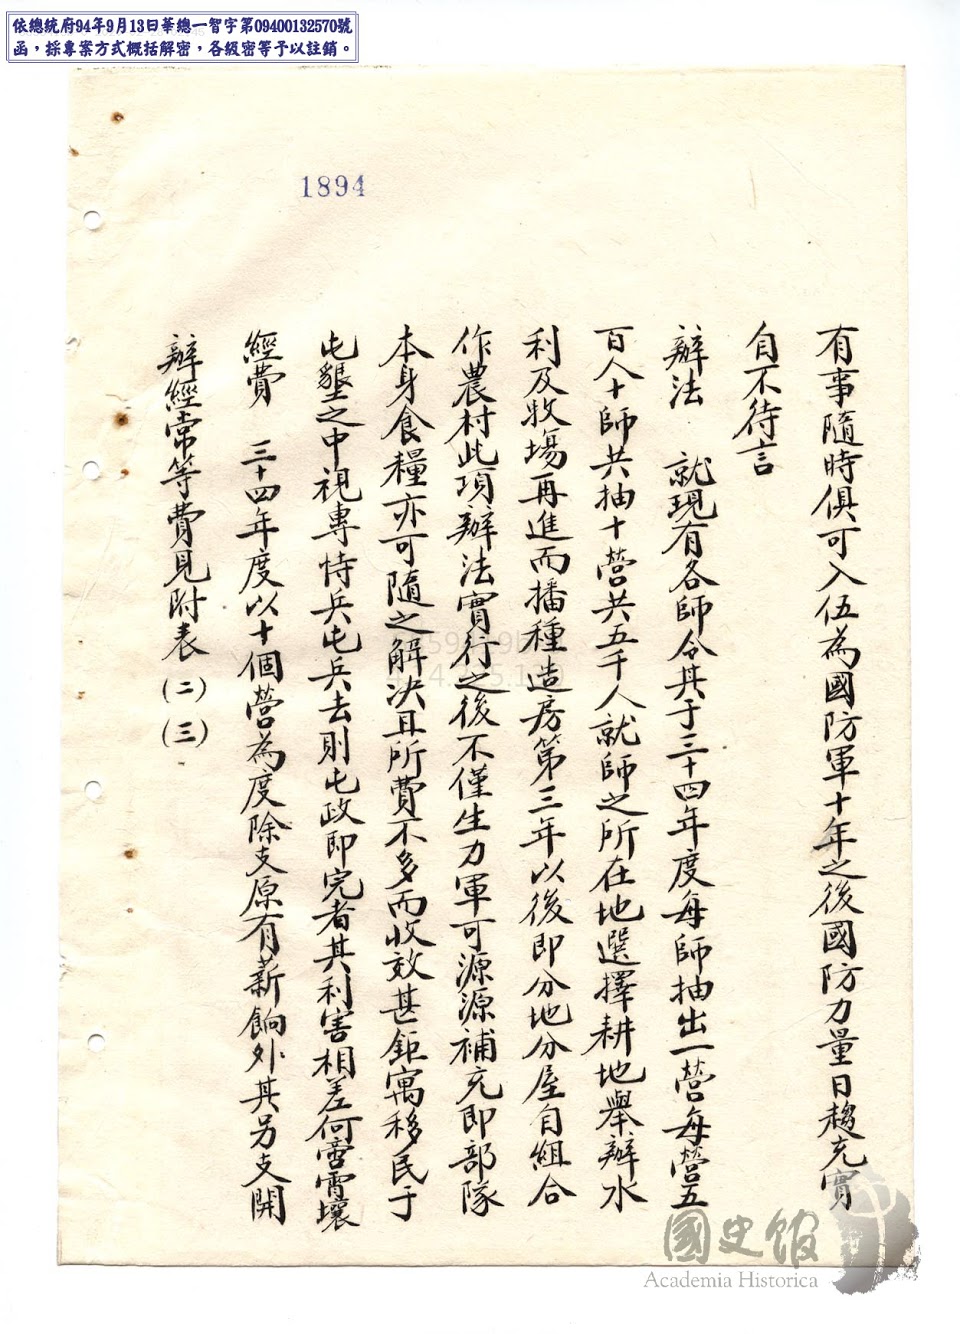 依總統府94年9月13日華總一智字第09400132570號
函，採專案方式概括解密，各級密等予以註銷。
1894
有事隨時俱可入伍為國防軍十年之後國防力量日趨充實
自不待言
辦法　就現有各師令其于三十四年度每師抽出一營每營五
百人十師共抽十營共五千人就師之所在地選擇耕地舉辦水
利及牧場再進而播種造房第三年以後即分地分屋自組合
作農村此項辦法實行之後不僅生力軍可源源補充即部隊
本身食糧亦可隨之解決且所費不多而收效甚鉅寓移民于
屯墾之中視專恃兵屯兵去則屯政即完者其利害相差何啻霄壤
經費　三十四年度以十個營為度除支原有薪餉外其另支開
辦經常等費見附表(二)(三)
國史館
Academia Historica